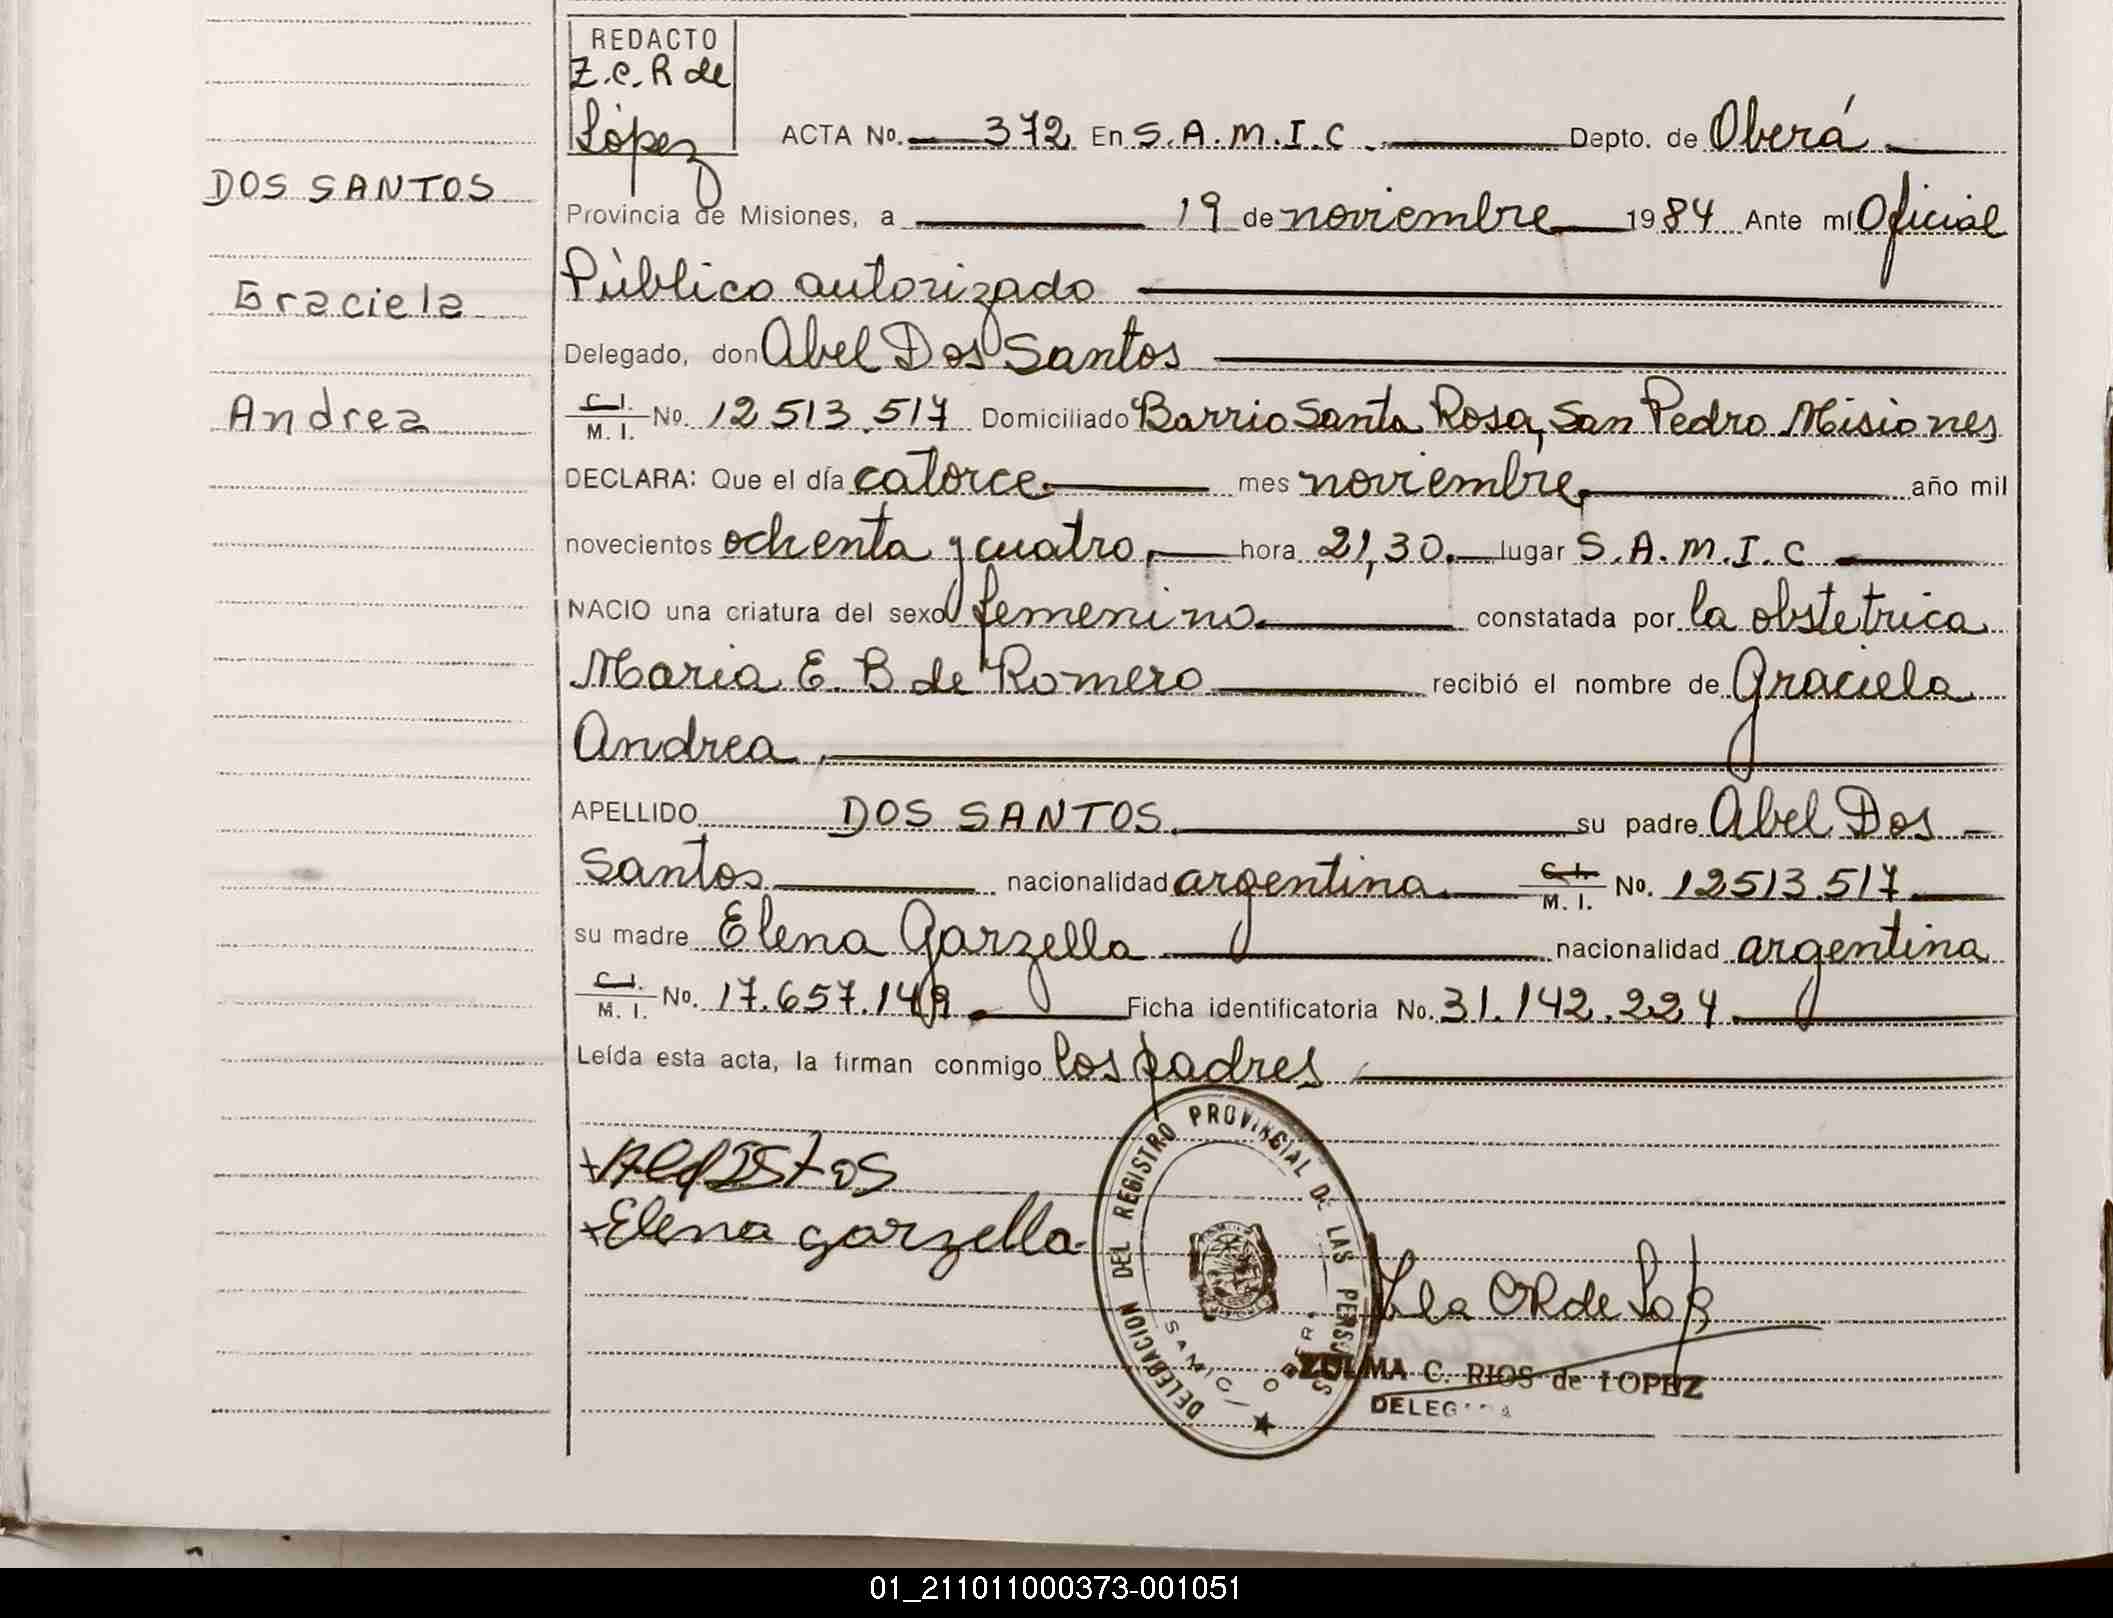 REDACTO
Z.C.R de
López
ACTA No. 372 En S.A.M.I.C. Depto. de Oberá
DOS SANTOS
Provincia de Misiones, a 19 de noviembre 1984 Ante mí Oficial
Público autorizado
Graciela
Delegado, don Abel Dos Santos
Andrea
C.I. M.I. No. 12 513.517 Domiciliado Barrio Santa Rosa, San Pedro Misiones
DECLARA: Que el día catorce mes noviembre año mil
novecientos ochenta y cuatro, hora 21,30. lugar S.A.M.I.C
NACIO una criatura del sexo femenino. constatada por la obstetrica
Maria E. B de Romero recibió el nombre de Graciela
Andrea.
APELLIDO DOS SANTOS. su padre Abel Dos
Santos nacionalidad argentina. C.I. M.I. No. 12513.517.
su madre Elena Garzella nacionalidad argentina
C.I. M.I. No. 17.657.149. Ficha identificatoria No. 31.142.224
Leída esta acta, la firman conmigo los padres
Elena garzella.
DELEGACION DEL REGISTRO PROVINCIAL DE LAS PERSONAS
SAMIC / OBERA
ZULMA C. RIOS de LOPEZ
DELEGADA
01_211011000373-001051